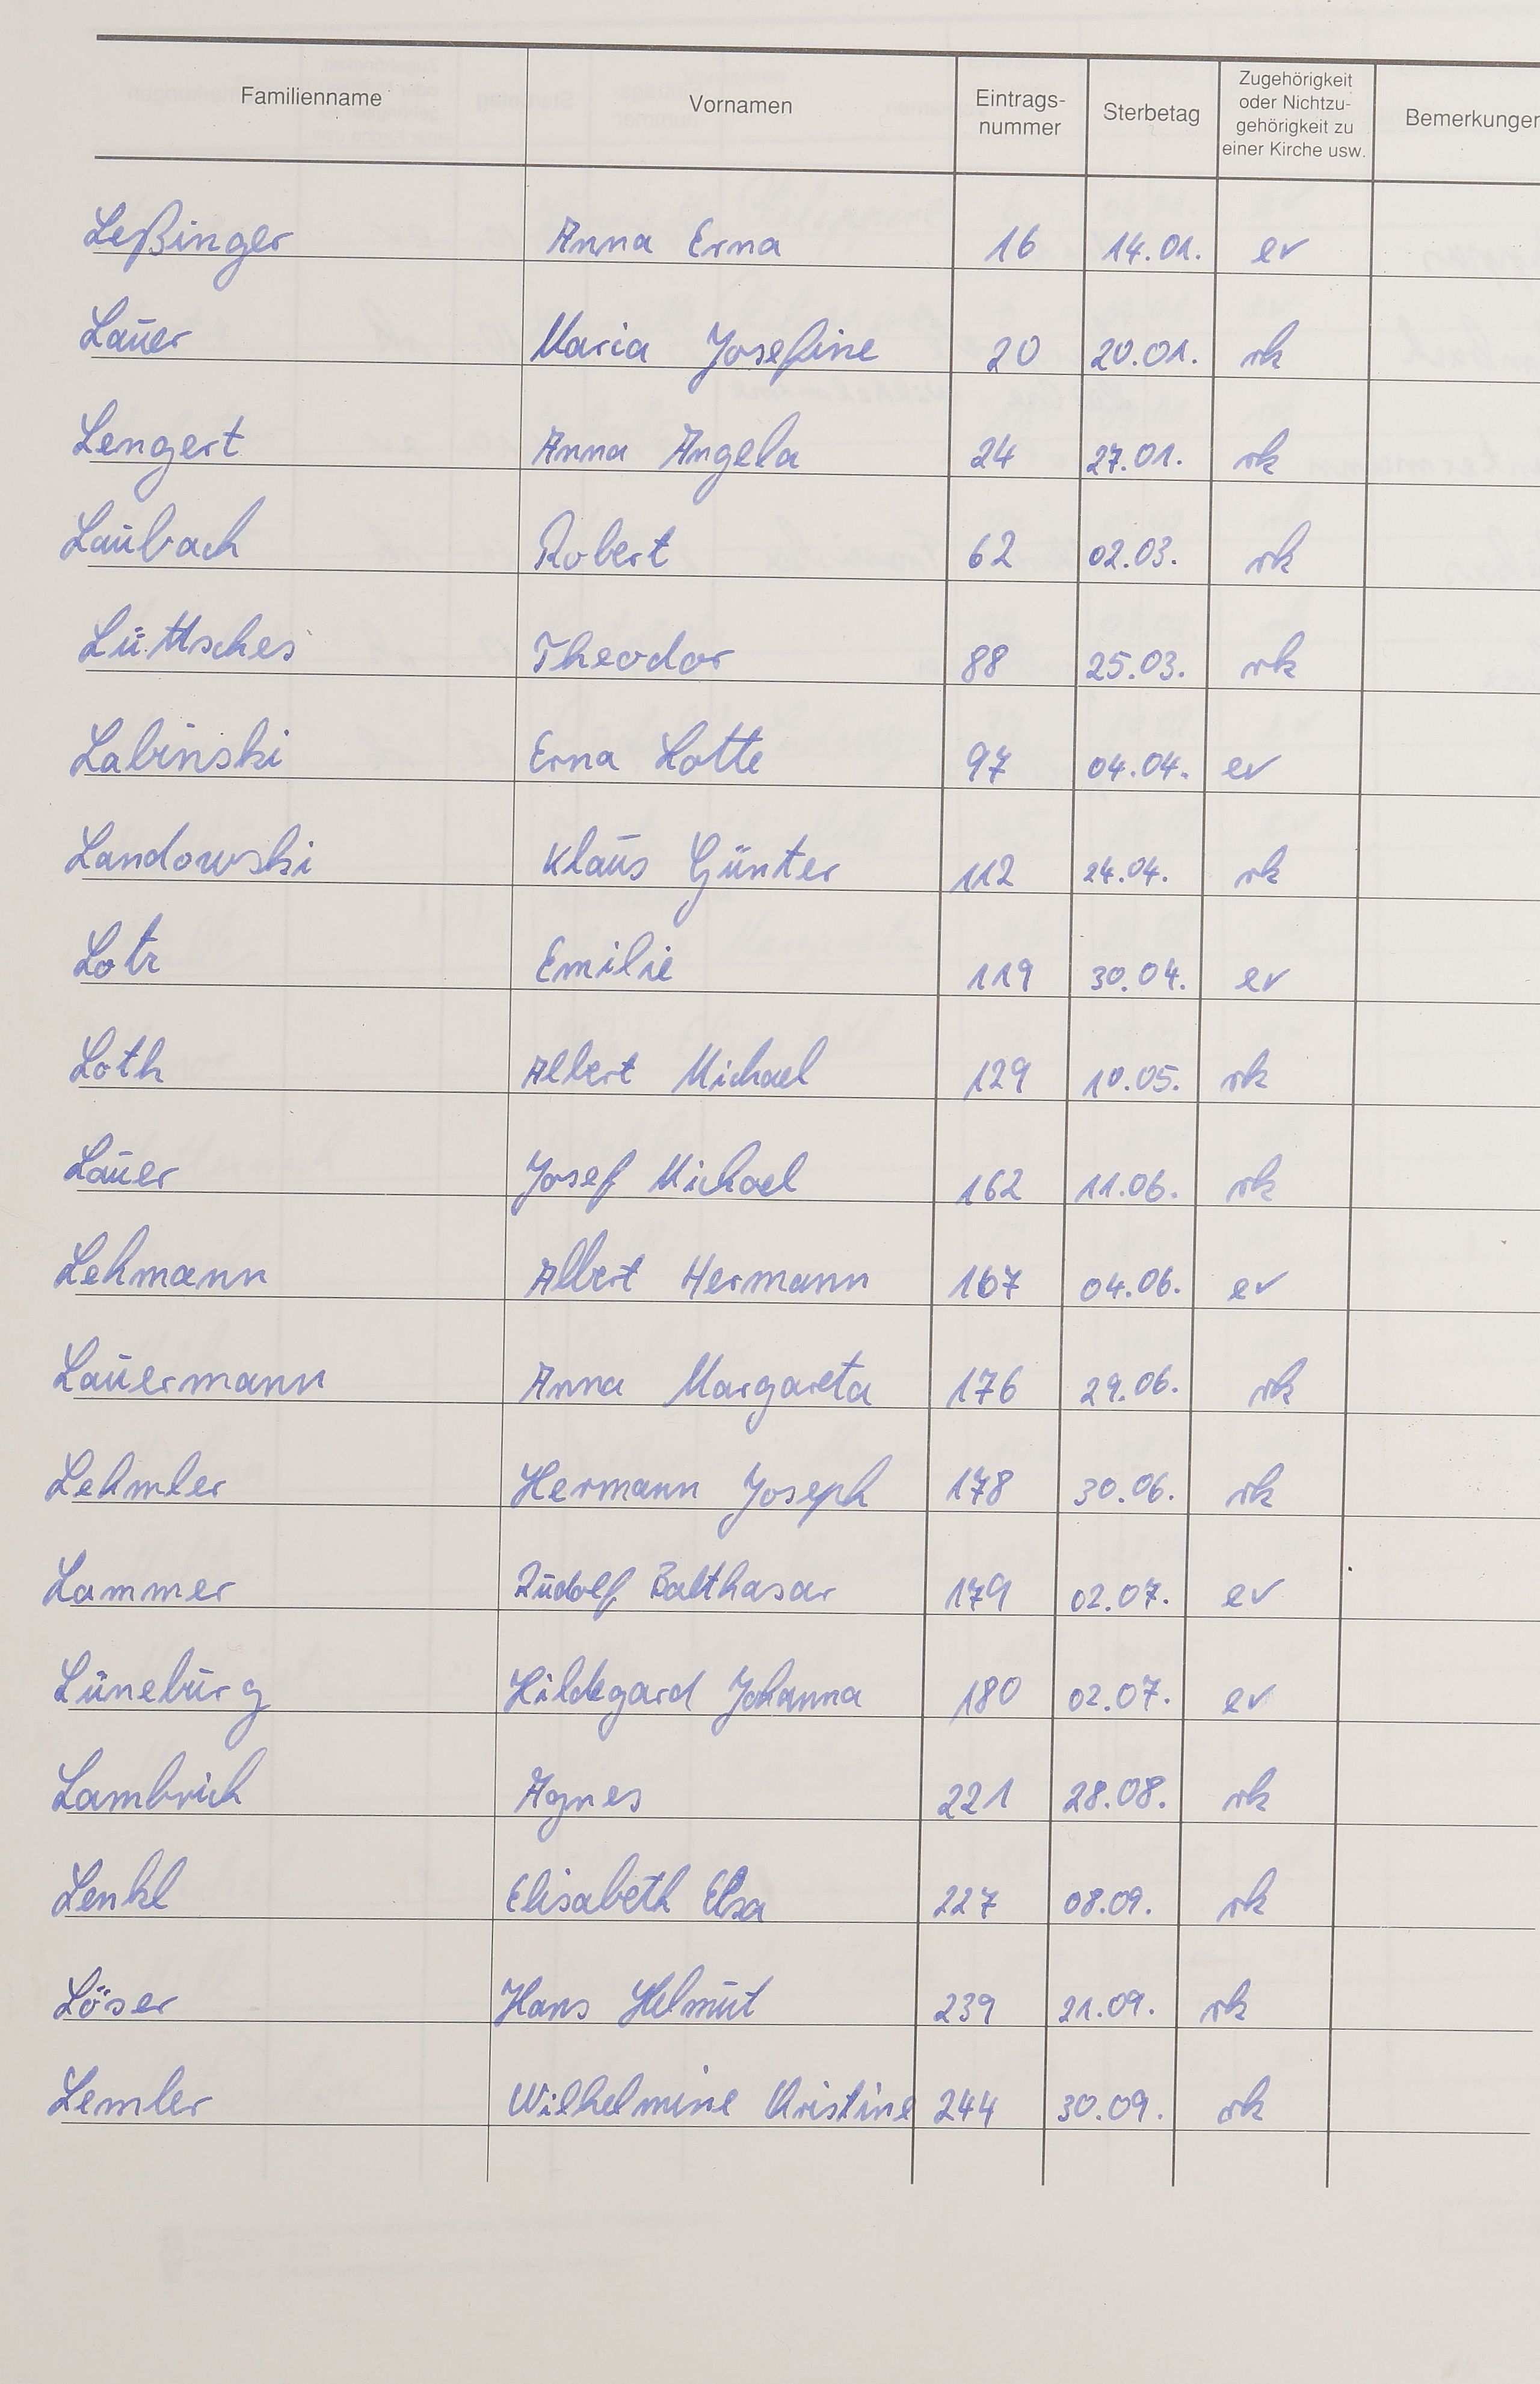 Familienname Vornamen Eintrags-nummer Sterbetag Zugehörigkeit oder Nichtzu-gehörigkeit zu einer Kirche usw. Bemerkungen
Leßinger Anna Erna 16 14.01. ev
Lauer Maria Josefine 20 20.01. rk
Lengert Anna Angela 24 27.01. rk
Laubach Robert 62 02.03. rk
Lüttsches Theodor 88 25.03. rk
Labinski Erna Lotte 97 04.04. ev
Landowski Klaus Günter 112 24.04. rk
Lotz Emilie 119 30.04. ev
Loth Albert Michael 129 10.05. rk
Lauer Josef Michael 162 11.06. rk
Lehmann Albert Hermann 167 04.06. ev
Lauermann Anna Margareta 176 29.06. rk
Lehmler Hermann Joseph 178 30.06. rk
Lammer Rudolf Balthasar 179 02.07. ev
Lüneburg Hildegard Johanna 180 02.07. ev
Lambrich Agnes 221 28.08. rk
Lenkl Elisabeth Elsa 227 08.09. rk
Löser Hans Helmut 239 21.09. rk
Lemler Wilhelmine Kristine 244 30.09. rk